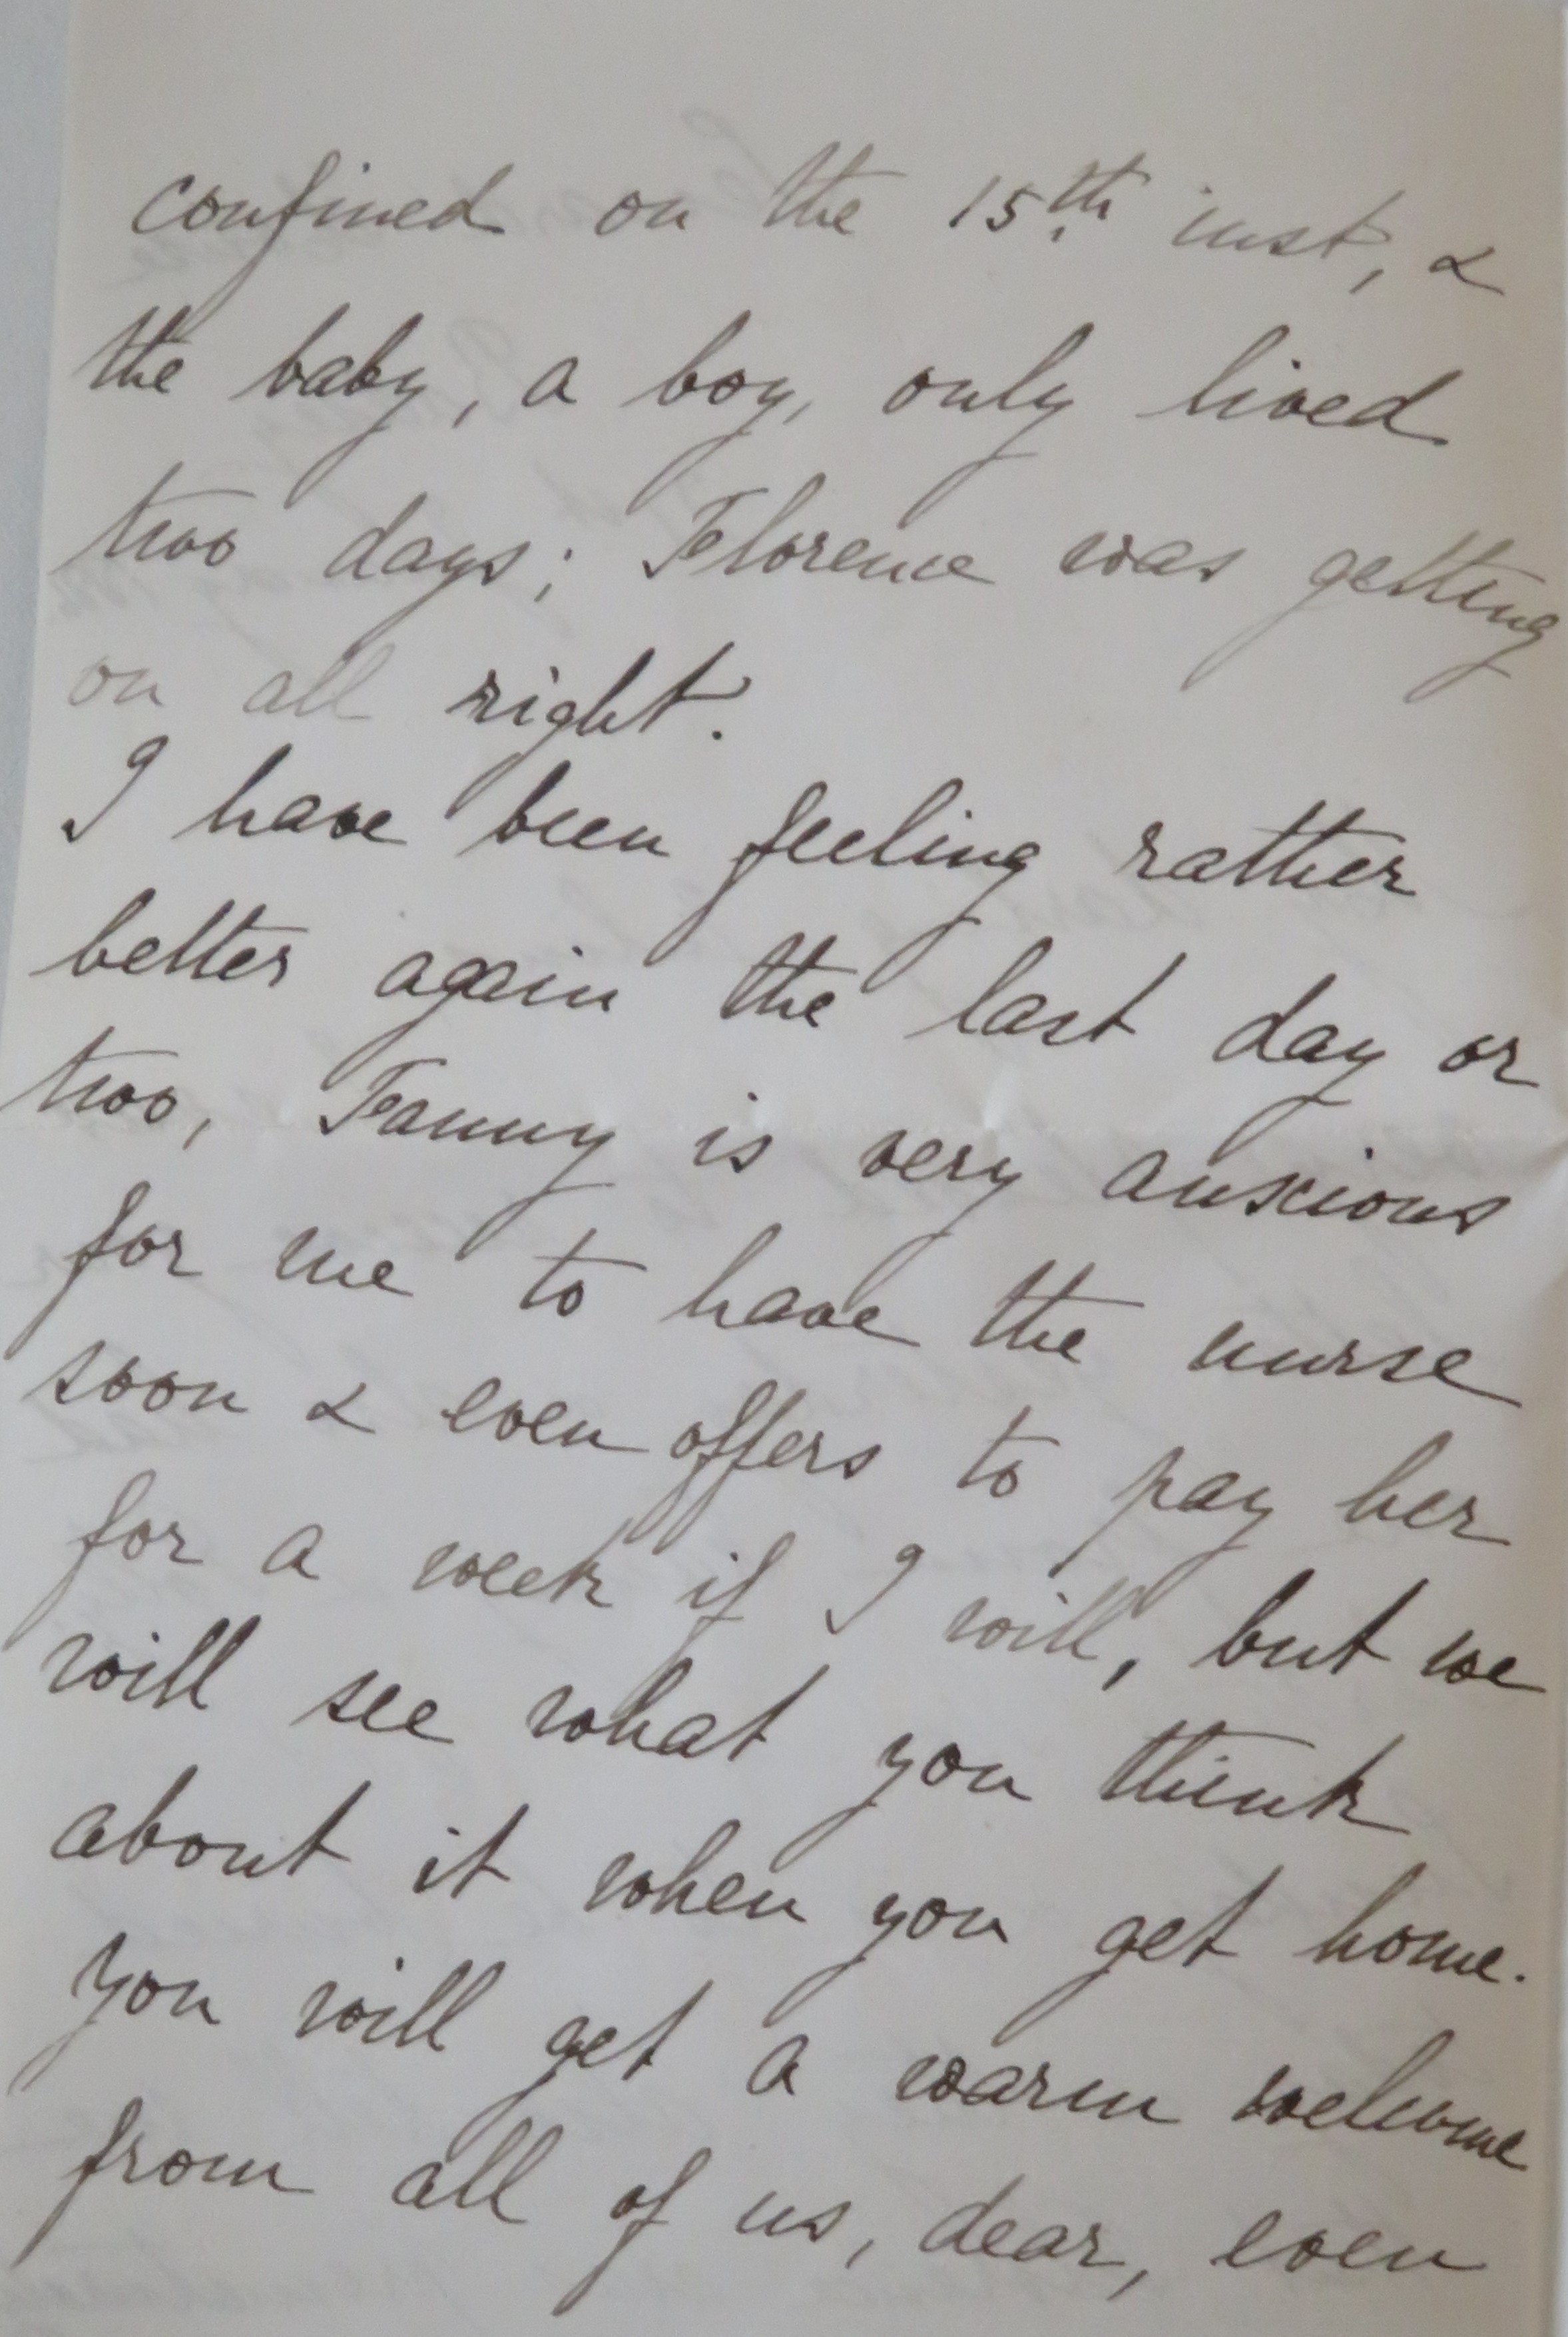 confined on the 15th. inst, &
the baby, a boy, only lived
two days; Florence was getting
on all right.
I have been feeling rather
better again the last day or
two, Fanny is very anxious
for me to have the nurse
soon & even offers to pay her
for a week if I will, but we
will see what you think
about it when you get home.
You will get a warm welcome
from all of us, dear, even